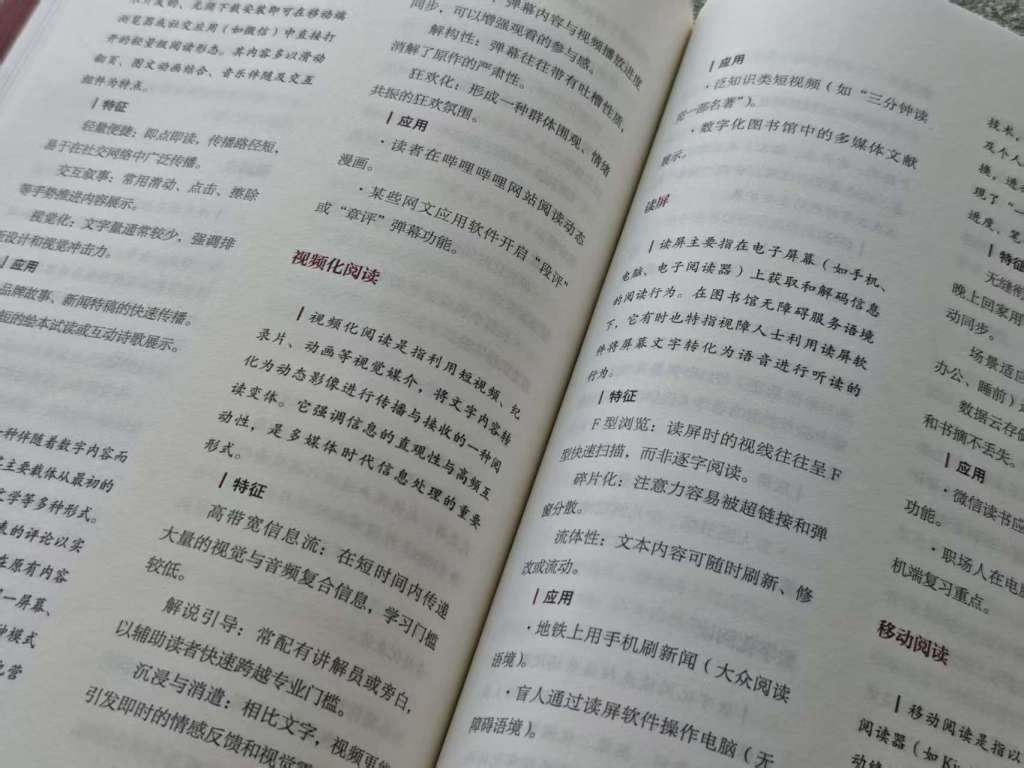 开发的、无须下载安装即可在移动端
浏览器或社交应用（如微信）中直接打
开的轻量级阅读形态。其内容多以滑动
翻页、图文动画结合、音乐伴随及交互
组件为特点。
特征
轻量便捷：即点即读，传播路径短，
易于在社交网络中广泛传播。
交互叙事：常用滑动、点击、擦除
等手势推进内容展示。
视觉化：文字量通常较少，强调排
设计和视觉冲击力。
应用
品牌故事、新闻特稿的快速传播。
短的绘本试读或互动诗歌展示。
一种伴随着数字内容而
主要载体从最初的
文学等多种形式。
来的评论以实
在原有内容
一屏幕、
模式
营
弹幕内容与视频播放进度
同步，可以增强观看的参与感。
解构性：弹幕往往带有吐槽性质，
消解了原作的严肃性。
狂欢化：形成一种群体围观、情绪
共振的狂欢氛围。
应用
·读者在哔哩哔哩网站阅读动态
漫画。
·某些网文应用软件开启“段评”
或“章评”弹幕功能。
视频化阅读
视频化阅读是指利用短视频、纪
录片、动画等视觉媒介，将文字内容转
化为动态影像进行传播与接收的一种阅
读变体。它强调信息的直观性与高频互
动性，是多媒体时代信息处理的重要
形式。
特征
高带宽信息流：在短时间内传递
大量的视觉与音频复合信息，学习门槛
较低。
解说引导：常配有讲解员或旁白，
以辅助读者快速跨越专业门槛。
沉浸与消遣：相比文字，视频更能
引发即时的情感反馈和视觉
应用
·泛知识类短视频（如“三分钟读
完一部名著”）。
·数字化图书馆中的多媒体文献
展示。
读屏
读屏主要指在电子屏幕（如手机、
电脑、电子阅读器）上获取和解码信息
的阅读行为。在图书馆无障碍服务语境
下，它有时也特指视障人士利用读屏软
件将屏幕文字转化为语音进行听读的
行为。
特征
F型浏览：读屏时的视线往往呈F
型快速扫描，而非逐字阅读。
碎片化：注意力容易被超链接和弹
窗分散。
流体性：文本内容可随时刷新、修
改或流动。
应用
·地铁上用手机刷新闻（大众阅读
语境）。
·盲人通过读屏软件操作电脑（无
障碍语境）。
技术，
及个人
换，
现了“一
进度、笔
特征
无缝衔
晚上回家用
动同步。
场景适应
办公、睡前）
数据云存储
和书摘不丢失。
应用
·微信读书应
功能。
·职场人在电脑
机端复习重点。
移动阅读
移动阅读是指以
阅读器（如Ki